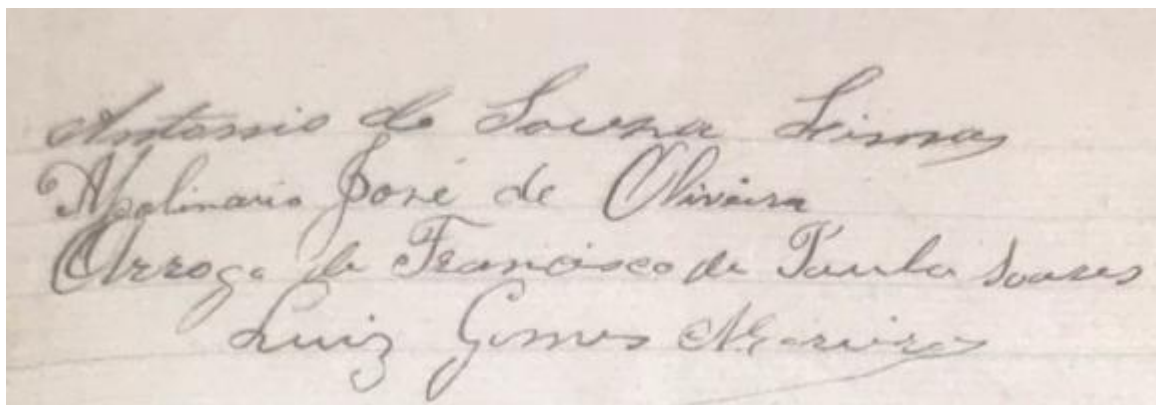 Antonio de Souza Lima
Apolinario José de Oliveira
Arrogo de Francisco de Paula Soares
Luiz Gomes